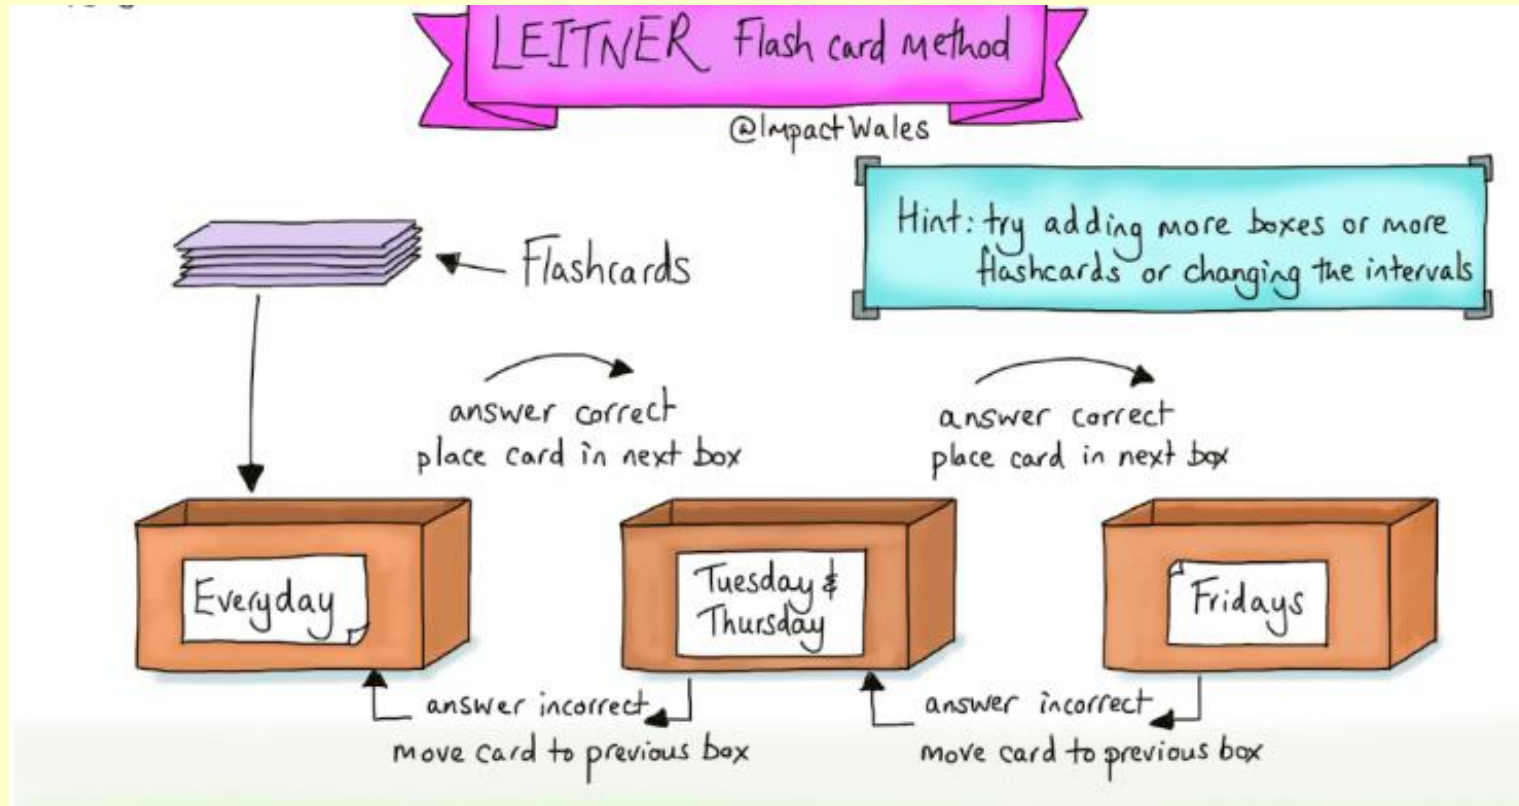 LEITNER Flash card method
@ImpactWales
Hint: try adding more boxes or more
flashcards or changing the intervals
Flashcards
answer correct
place card in next box
answer correct
place card in next box
Everyday
Tuesday &
Thursday
Fridays
answer incorrect
move card to previous box
answer incorrect
move card to previous box